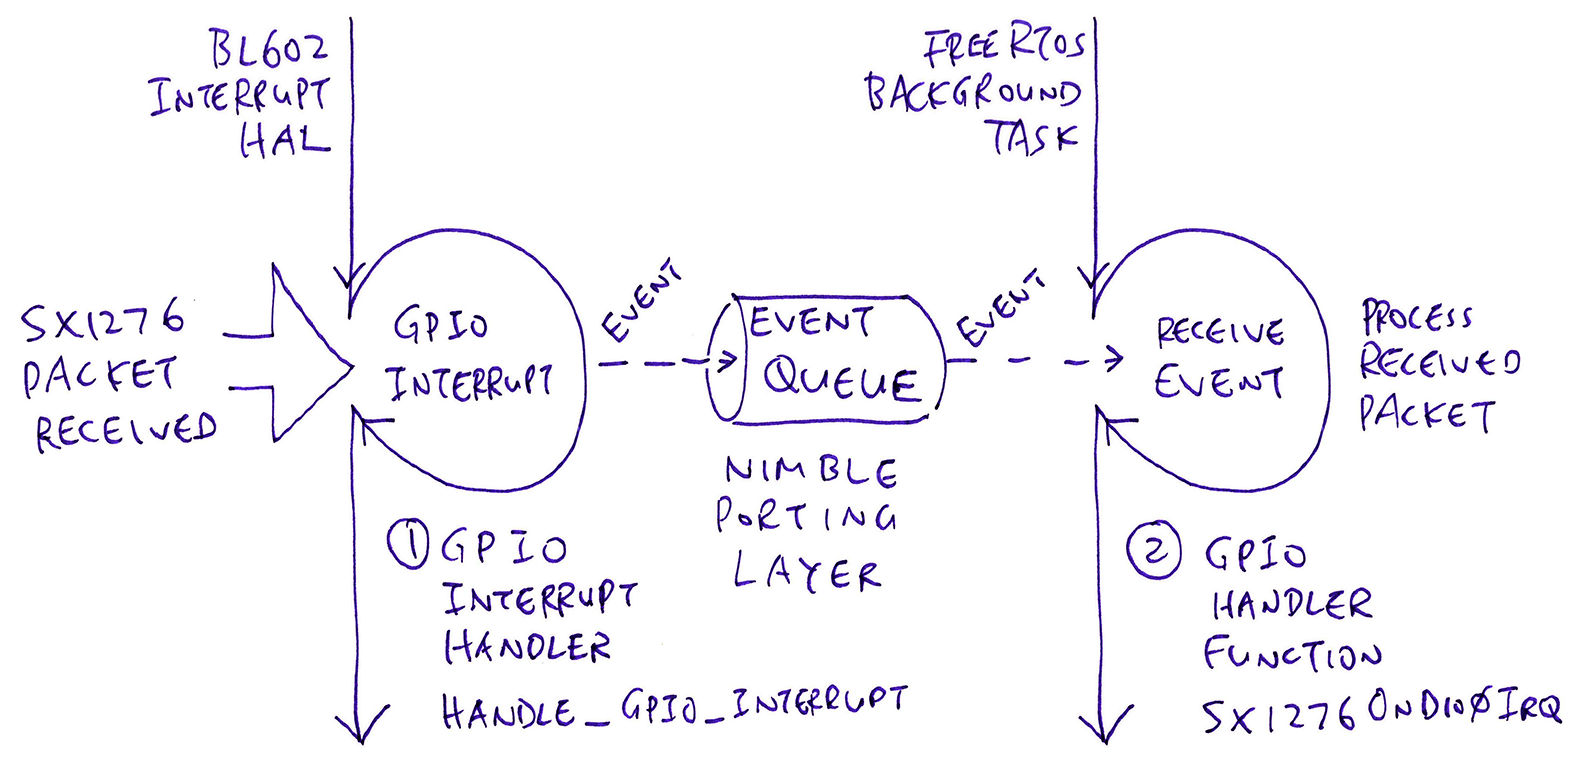 BL602
INTERRUPT
HAL
FREERTOS
BACKGROUND
TASK
SX1276
PACKET
RECEIVED
GPIO
INTERRUPT
EVENT
EVENT
QUEUE
NIMBLE
PORTING
LAYER
EVENT
RECEIVE
EVENT
PROCESS
RECEIVED
PACKET
① GPIO
INTERRUPT
HANDLER
HANDLE_GPIO_INTERRUPT
② GPIO
HANDLER
FUNCTION
SX1276ONDIO0IRQ